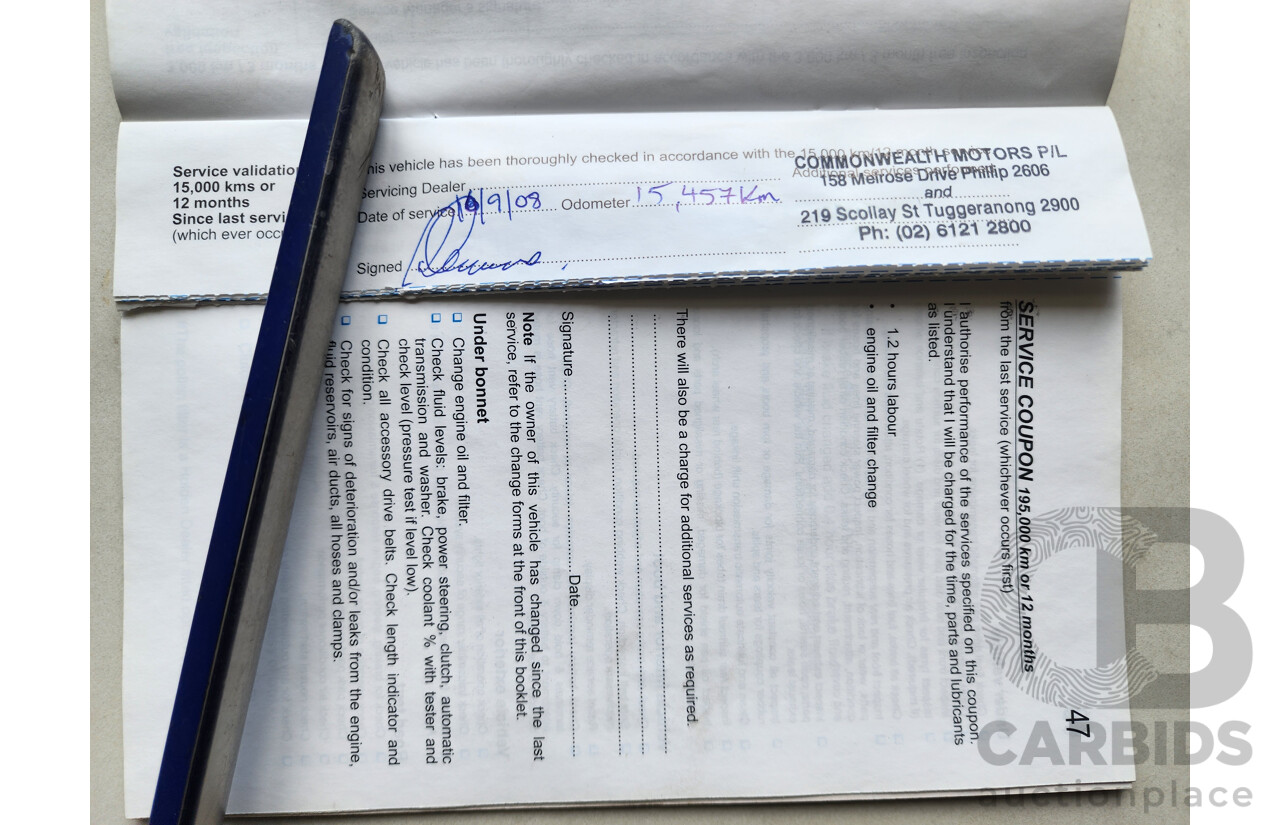 Service validation
15,000 kms or
12 months
Since last servi
(which ever occ
his vehicle has been thoroughly checked in accordance with the 15,000 km/12 month service
Servicing Dealer
Additional services performed
Date of service 9/08 Odometer 15,457 Km
Signed
COMMONWEALTH MOTORS P/L
158 Melrose Drive Phillip 2606
and
219 Scollay St Tuggeranong 2900
Ph: (02) 6121 2800
47
SERVICE COUPON 195,000 km or 12 months
from the last service (whichever occurs first)
I authorise performance of the services specified on this coupon.
I understand that I will be charged for the time, parts and lubricants
as listed.
• 1.2 hours labour
• engine oil and filter change
There will also be a charge for additional services as required.
Signature Date
Note If the owner of this vehicle has changed since the last
service, refer to the change forms at the front of this booklet.
Under bonnet
❑ Change engine oil and filter.
❑ Check fluid levels: brake, power steering, clutch, automatic
transmission and washer. Check coolant % with tester and
check level (pressure test if level low).
❑ Check all accessory drive belts. Check length indicator and
condition.
❑ Check for signs of deterioration and/or leaks from the engine,
fluid reservoirs, air ducts, all hoses and clamps.
CARBIDS
auctionplace